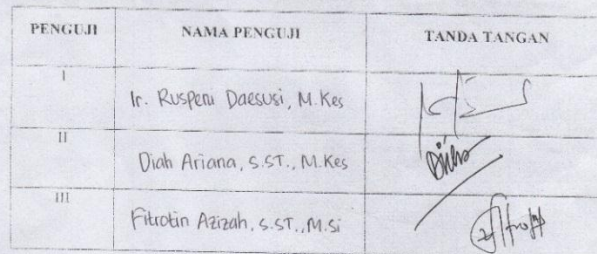 PENGUJI NAMA PENGUJI TANDA TANGAN
I
Ir. Ruspeni Daesusi, M.Kes
II
Diah Ariana, S.ST., M.Kes
III
Fitrotin Azizah, S.ST., M.Si